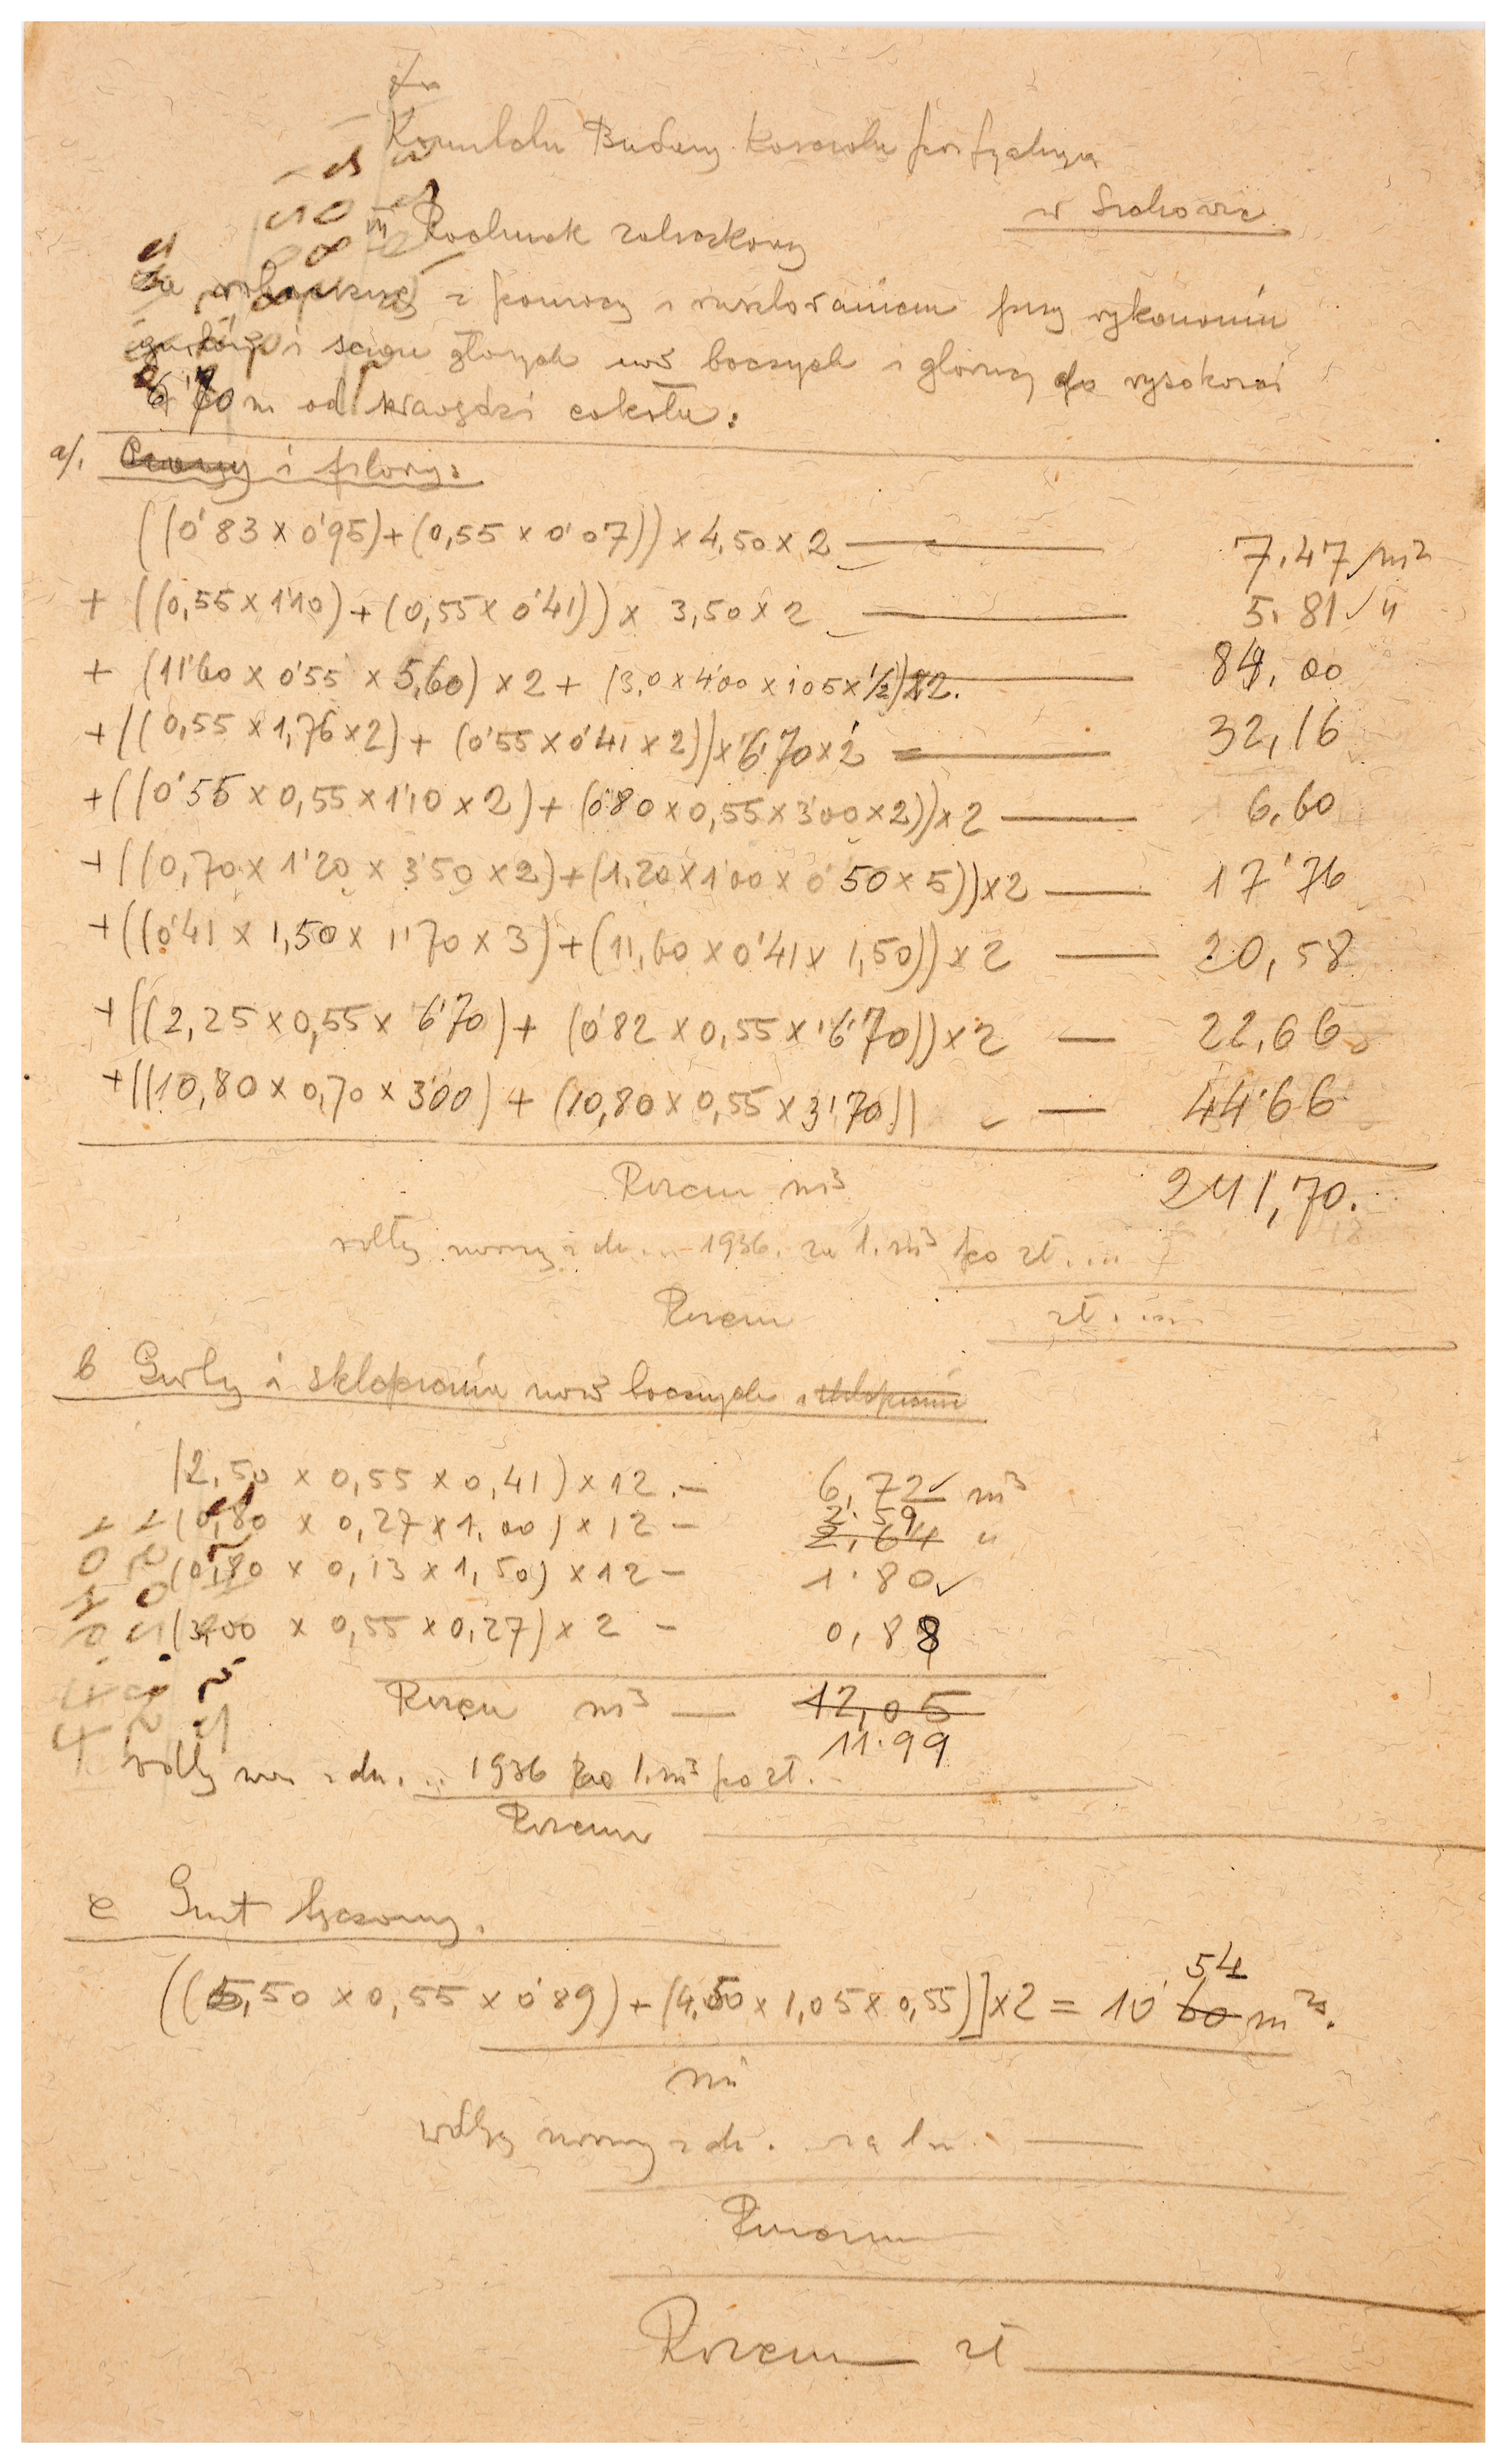 Do
Komitetu Budowy Kościoła parafialnego
w
III Rachunek zaliczkowy
za robociznę z pomocy i rusztowaniem przy wykonaniu
i ścian głównych naw bocznych i głównej do wysokości
6'70 m od krawędzi cokołu:
a/. i filary:
((0'83 x 0'95) + (0,55 x 0'07)) x 4,50 x 2 — 7.47 m²
+ ((0,55 x 1'10) + (0,55 x 0'41)) x 3,50 x 2 — 5.81 "
+ (11'60 x 0'55 x 5,60) x 2 + (3,0 x 4'00 x 1'05 x 1/2) x 2. — 84,00
+ ((0,55 x 1,76 x 2) + (0'55 x 0'41 x 2)) x 6'70 x 2 — 32,16
+ ((0'55 x 0,55 x 1'10 x 2) + (0'80 x 0,55 x 3'00 x 2)) x 2 — 6,60
+ ((0,70 x 1'20 x 3'50 x 2) + (1,20 x 1'00 x 0'50 x 5)) x 2 — 17'76
+ ((0'41 x 1,50 x 1'70 x 3) + (11,60 x 0'41 x 1,50)) x 2 — 20,58
+ ((2,25 x 0,55 x 6'70) + (0'82 x 0,55 x 6'70)) x 2 — 22,66
+ ((10,80 x 0,70 x 3'00) + (10,80 x 0,55 x 3'70)) — 44'66
Razem m³ 241,70.
wdłg normy z dn. ... 1936. za 1. m³ po zł. ...
Razem zł. ...
b Gurty i sklepienia naw bocznych i sklepienia
(2,50 x 0,55 x 0,41) x 12. — 6,72 m³
+ (0,80 x 0,27 x 1,00) x 12 — 2.59
2,64 "
(0,80 x 0,13 x 1,50) x 12 — 1.80
(3,00 x 0,55 x 0,27) x 2 — 0,88
Razem m³ — 12,05
11.99
wdłg nor. z dn. ... 1936 za 1. m³ po zł. ..
Razem
c Gurt tęczowy.
((5,50 x 0,55 x 0'89) + (4,50 x 1,05 x 0,55)] x 2 = 10'60 m³.
54
m³
wdłg normy z dn. . za 1 m
Razem
Razem zł